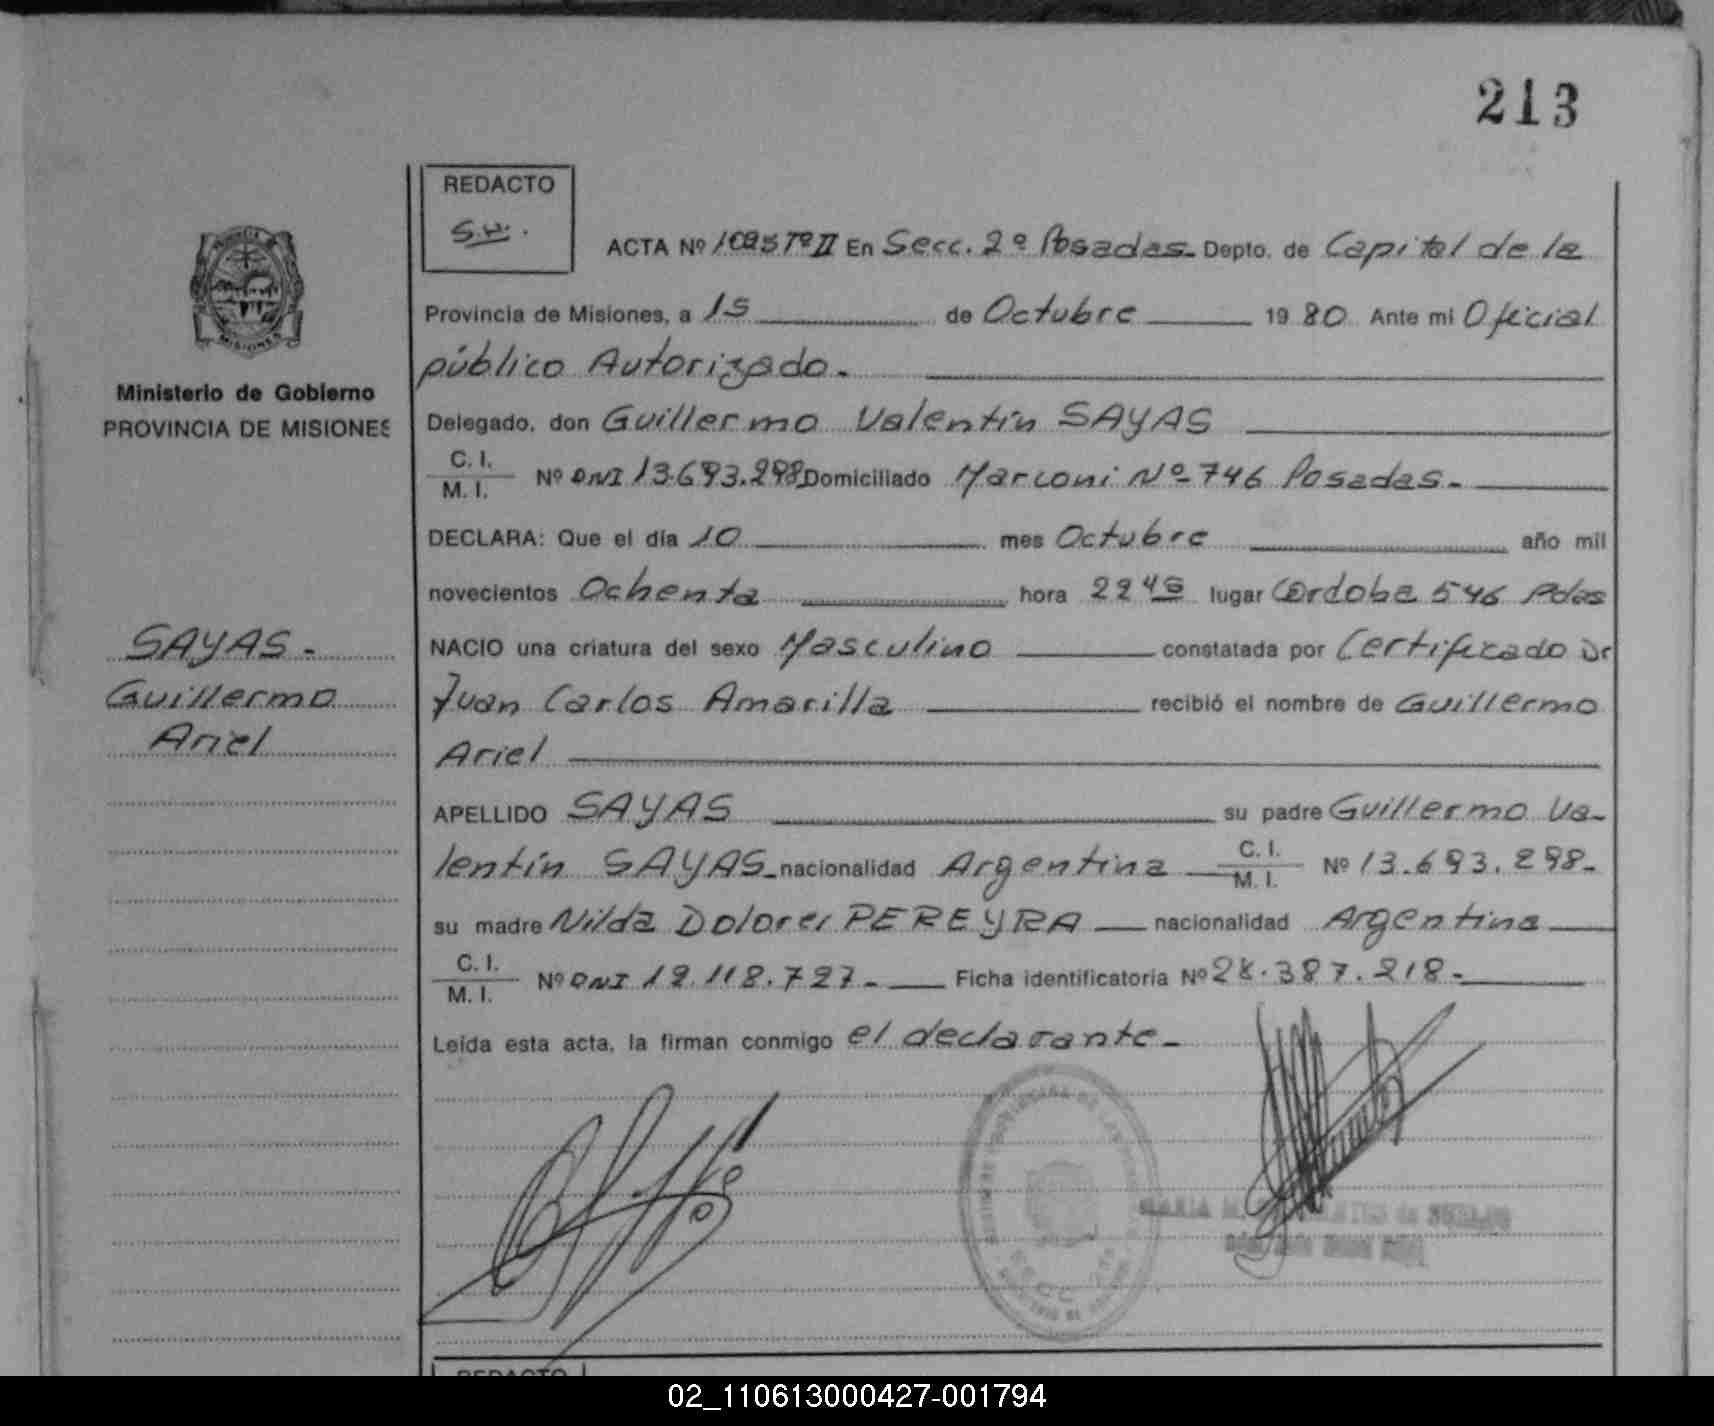 213
REDACTO
S.H.
ACTA Nº 1095 Tº II En Secc. 2º Posadas Depto. de Capital de la
Provincia de Misiones, a 15 de Octubre 1980 Ante mi Oficial
público Autorizado.
Ministerio de Gobierno
PROVINCIA DE MISIONES
Delegado, don Guillermo Valentín SAYAS
C. I.
M. I. Nº DNI 13.693.298 Domiciliado Marconi Nº 746 Posadas.
DECLARA: Que el día 10 mes Octubre año mil
novecientos Ochenta hora 22 45 lugar Córdoba 546 Pdas
NACIO una criatura del sexo Masculino constatada por Certificado Dr
Juan Carlos Amarilla recibió el nombre de Guillermo
Ariel
SAYAS.
Guillermo
Ariel
APELLIDO SAYAS su padre Guillermo Va-
lentín SAYAS nacionalidad Argentina C. I. M. I. Nº 13.693.298.
su madre Nilda Dolores PEREYRA nacionalidad Argentina
C. I.
M. I. Nº DNI 12.118.727. Ficha identificatoria Nº 28.387.218.
Leída esta acta, la firman conmigo el declarante.
REDACTO
02_110613000427-001794